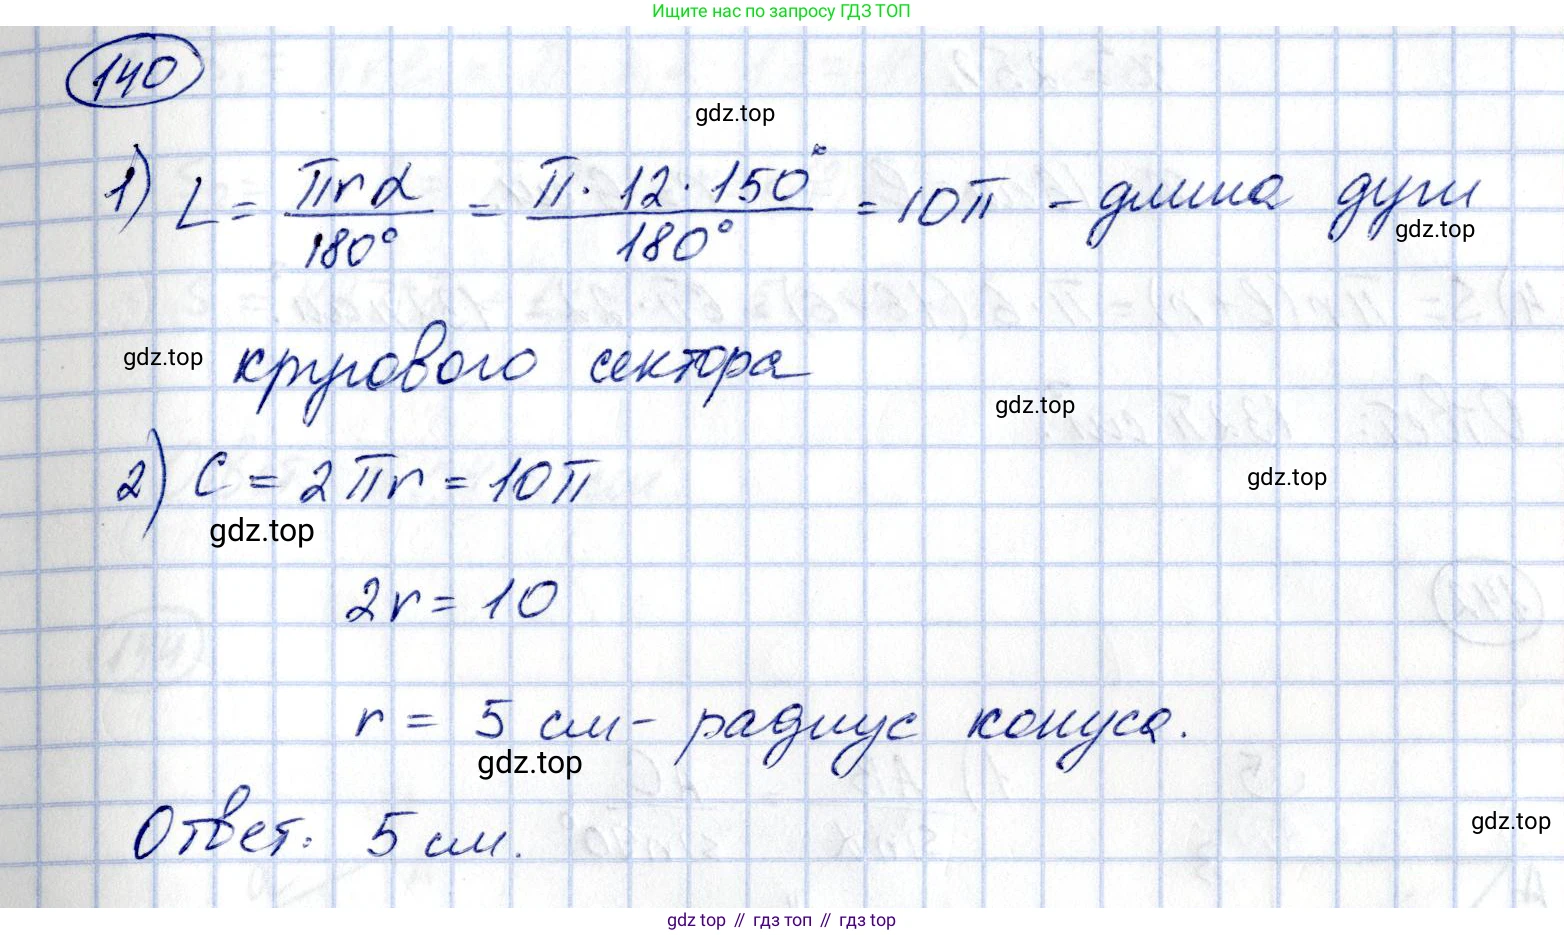 Ищите нас по запросу ГДЗ ТОП
140
gdz.top
1) L = πrα / 180° = π · 12 · 150° / 180° = 10π - длина дуги
gdz.top
gdz.top
кругового сектора
gdz.top
2) C = 2πr = 10π
gdz.top
gdz.top
2r = 10
r = 5 см - радиус конуса.
gdz.top
Ответ: 5 см.
gdz.top
gdz top // гдз топ // гдз top